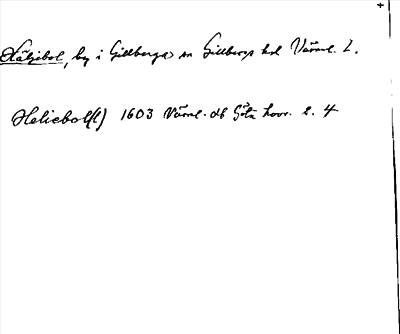 Häljebol, by i Gillberga sn Gillbergs hd Värml. L.
Heliebol(l) 1603 Värml. db Göta hovr. 2. 4